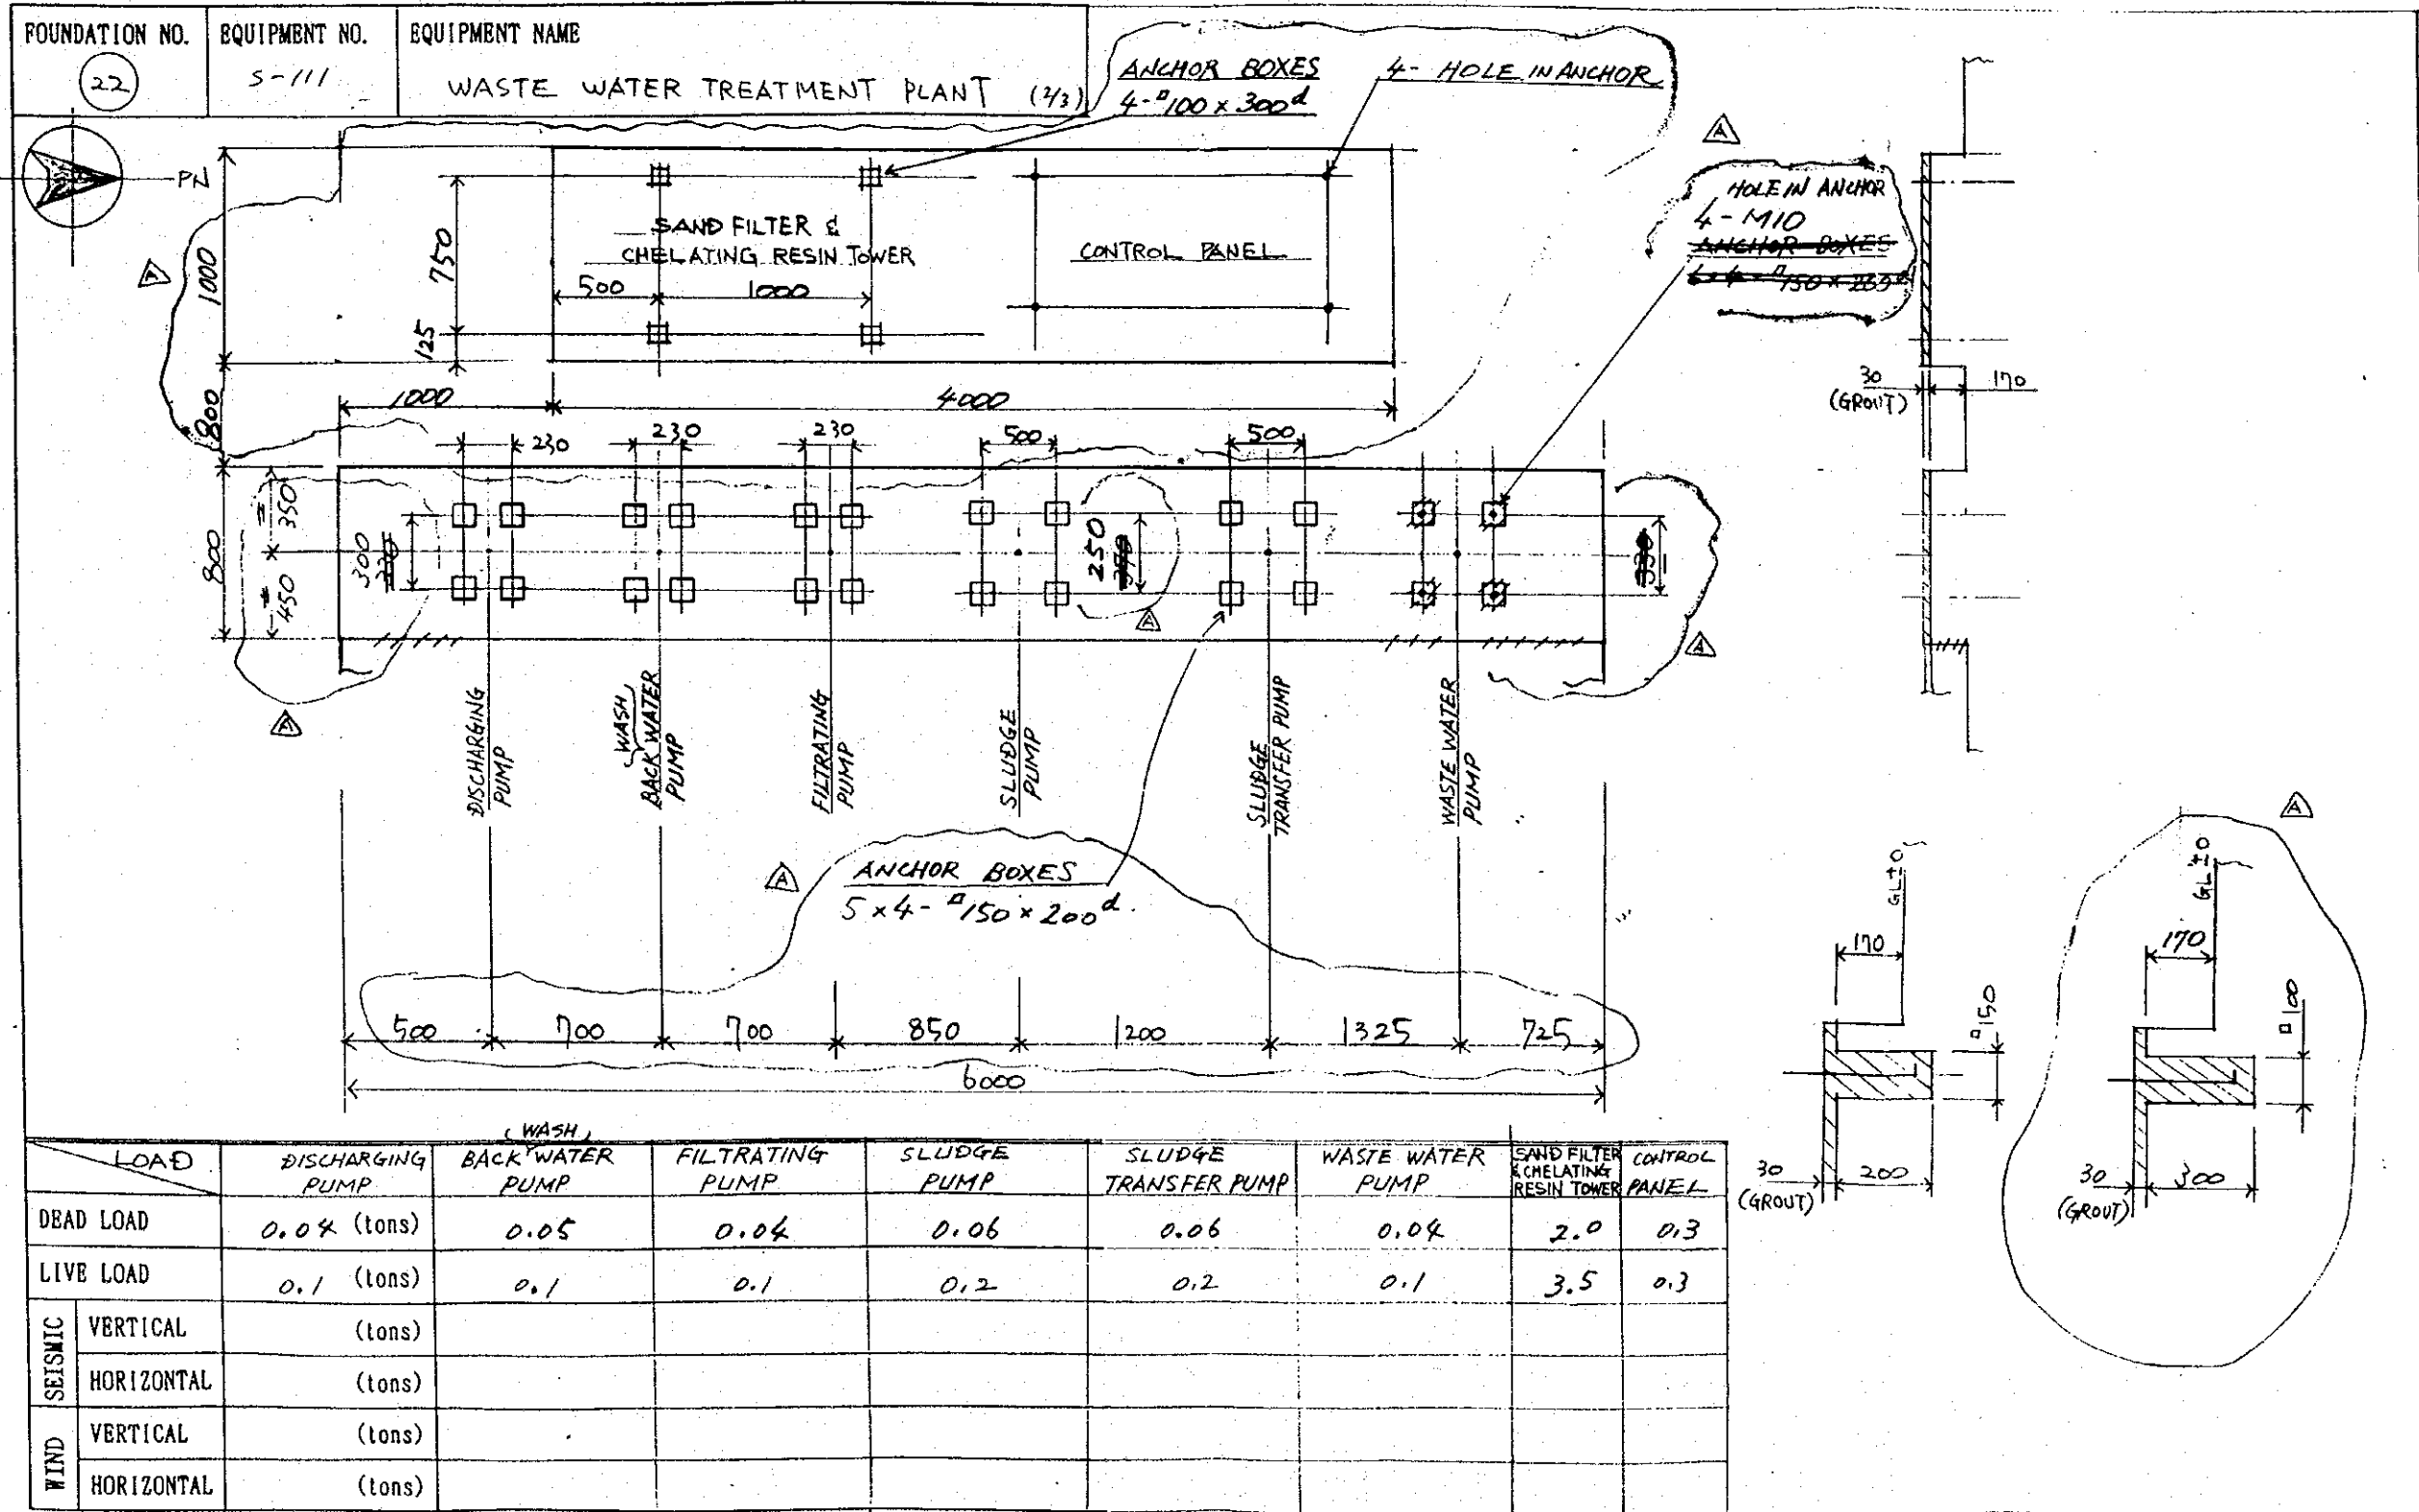 FOUNDATION NO.
22
EQUIPMENT NO.
S-111
EQUIPMENT NAME
WASTE WATER TREATMENT PLANT (2/3)
ANCHOR BOXES
4-□100 x 300d
4- HOLE IN ANCHOR
PN
A
HOLE IN ANCHOR
4-M10
ANCHOR BOXES
SAND FILTER &
CHELATING RESIN TOWER
CONTROL PANEL
1000
750
125
500
1000
800
1000
4000
30
(GROUT)
170
230
230
230
500
500
800
≒350
≒450
300
250
370
330
A
A
A
DISCHARGING
PUMP
WASH
BACK WATER
PUMP
FILTRATING
PUMP
SLUDGE
PUMP
SLUDGE
TRANSFER PUMP
WASTE WATER
PUMP
A
A
ANCHOR BOXES
5 x 4- □150 x 200d.
A
500
700
700
850
1200
1325
725
6000
GL±0
170
□150
30
(GROUT)
200
GL±0
170
□100
30
(GROUT)
300
LOAD
DISCHARGING
PUMP
(WASH)
BACK WATER
PUMP
FILTRATING
PUMP
SLUDGE
PUMP
SLUDGE
TRANSFER PUMP
WASTE WATER
PUMP
SAND FILTER
& CHELATING
RESIN TOWER
CONTROL
PANEL
DEAD LOAD 0.04 (tons) 0.05 0.04 0.06 0.06 0.04 2.0 0.3
LIVE LOAD 0.1 (tons) 0.1 0.1 0.2 0.2 0.1 3.5 0.3
SEISMIC
VERTICAL (tons)
HORIZONTAL (tons)
WIND
VERTICAL (tons)
HORIZONTAL (tons)